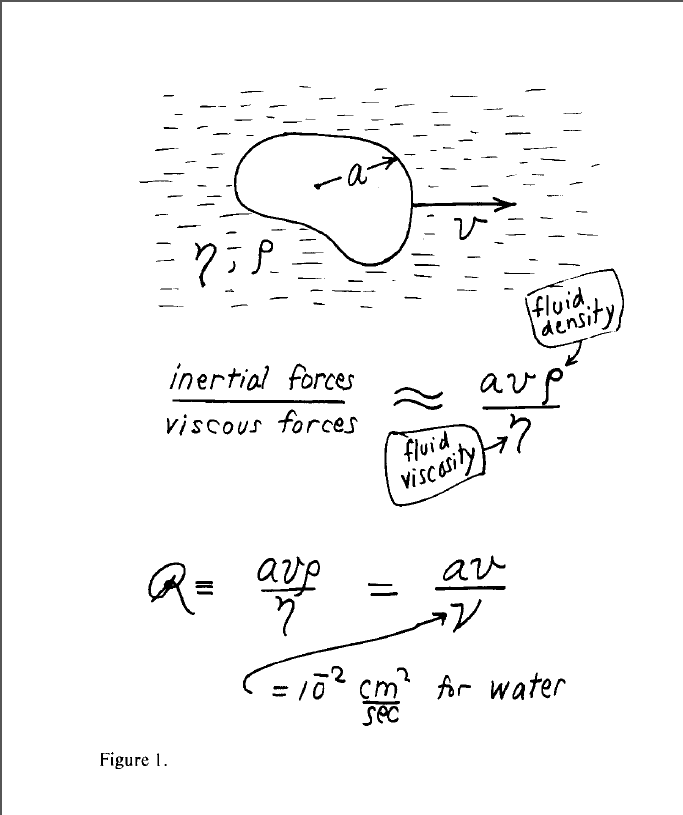 a
v
η, ρ
fluid
density
inertial forces
viscous forces
≈
avρ
η
fluid
viscosity
R ≡ avρ / η = av / ν
= 10⁻² cm²/sec for water
Figure 1.